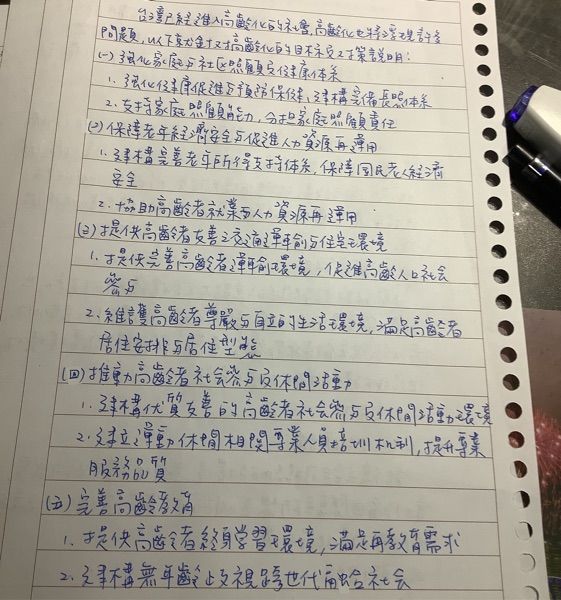 台灣已經進入高齡化的社會,高齡化也將浮現許多
問題,以下就針對高齡化的目標及對策說明:
(一)強化家庭與社區照顧及健康体系
1.強化健康促進與預防保健,建構完備長照体系
2.支持家庭照顧能力,分担家庭照顧責任
(二)保障老年經濟安全与促進人力資源再運用
1.建構完善老年所得支持体系,保障國民老人經濟
安全
2.協助高齡者就業与人力資源再運用
(三)提供高齡者友善之交通運輸与住宅環境
1.提供完善高齡者運輸環境,促進高齡人口社会
參与
2.維護高齡者尊嚴与自立的生活環境,滿足高齡者
居住安排与居住型態
(四)推動高齡者社会參与及休閒活動
1.建構优質友善的高齡者社会參与及休閒活動環境
2.建立運動休閒相関專業人員培訓机制,提升專業
服務品質
(五)完善高齡教育
1.提供高齡者終身學習環境,滿足再教育需求
2.建構無年齡歧視跨世代融合社会